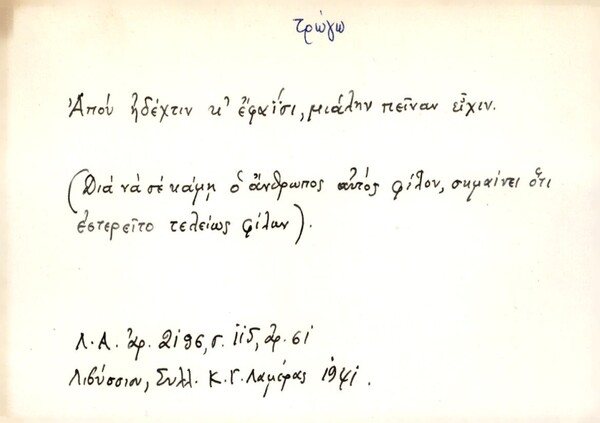 τρώγω
Ἀπού ἠδέχτιν κ' ἔφαΐσι, μιάλην πεῖναν εἶχιν.
(Διά νά σέ κάμῃ ὁ ἄνθρωπος αὐτός φίλον, σημαίνει ὅτι
ἐστερεῖτο τελείως φίλων).
Λ.Α. ἀρ. 2196, σ. 115, ἀρ. 61
Λιβύσσιον, Συλλ. Κ.Γ. Λαμέρας 1941.